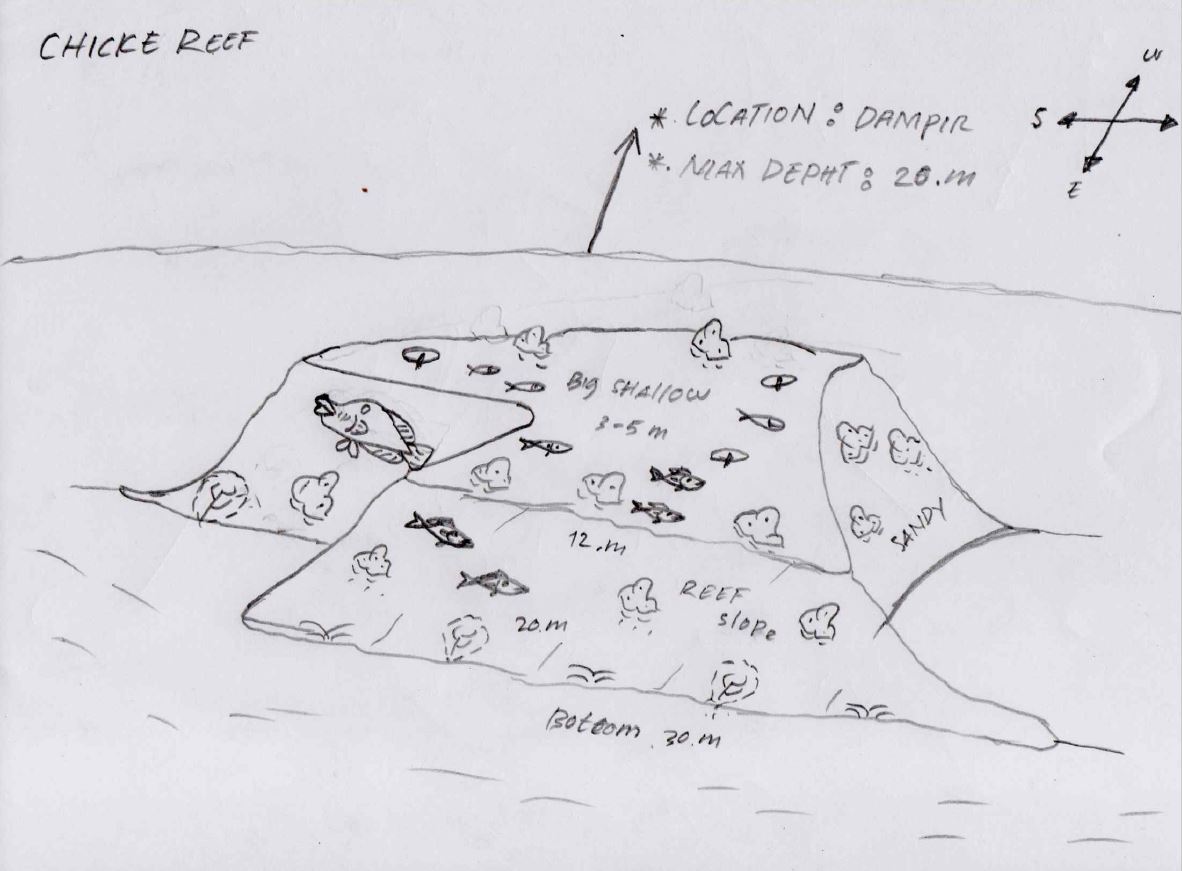 CHICKE REEF
W
*. LOCATION : DAMPIR
S
*. MAX DEPHT : 20.m
E
BIG SHALLOW
3-5 m
SANDY
12.m
REEF
slope
20.m
Bottom 30.m